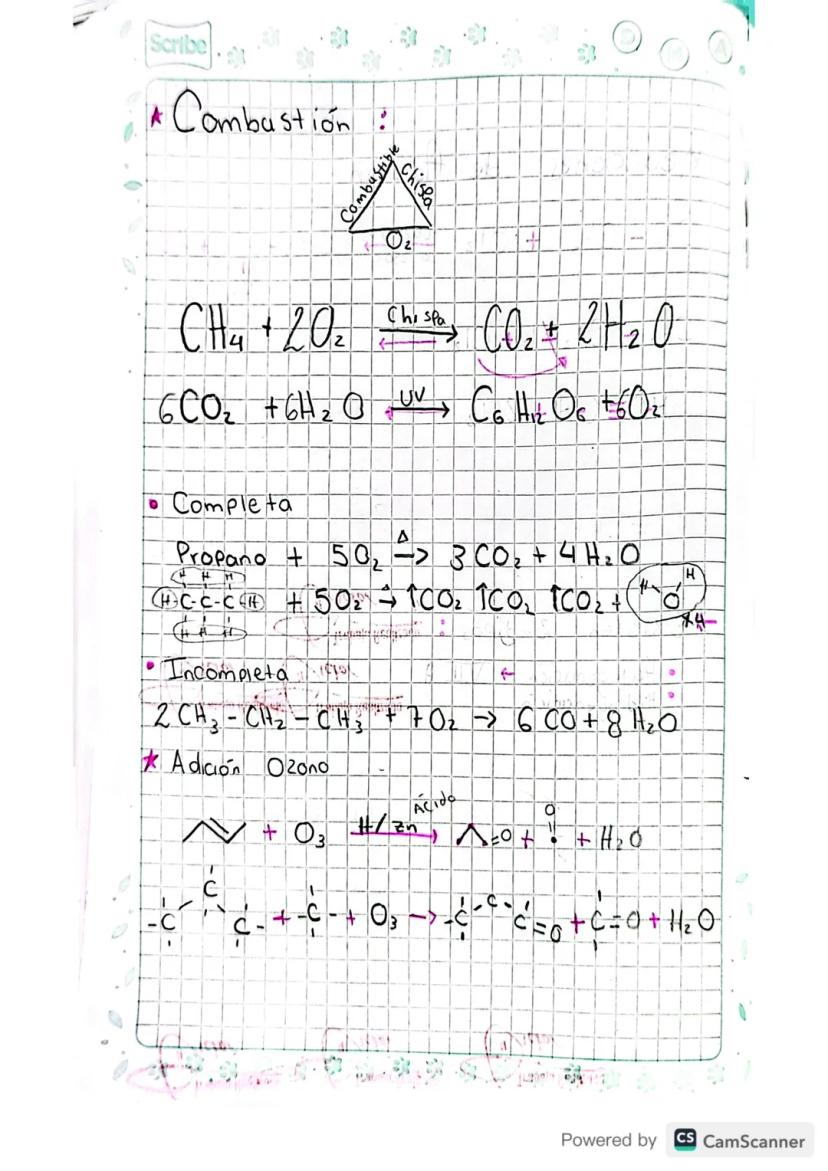 Scribe
D M A
* Combustión :
Combustible Chispa
O₂
CH₄ + 2O₂ Chispa → CO₂ + 2H₂O
6CO₂ + 6H₂O UV → C₆H₁₂O₆ + 6O₂
• Completa
Propano + 5O₂ Δ → 3CO₂ + 4H₂O
H H H
H C-C-C H + 5O₂ Δ → ↑CO₂ ↑CO₂ ↑CO₂ + H O H
H H H x4
• Incompleta
2CH₃-CH₂-CH₃ + 7O₂ → 6CO + 8H₂O
* Adición Ozono
+ O₃ H/Zn Ácido → =O + O ‖ + H₂O
-C C C- + -C- + O₃ → -C-C-C=O + C=O + H₂O
Powered by CS CamScanner